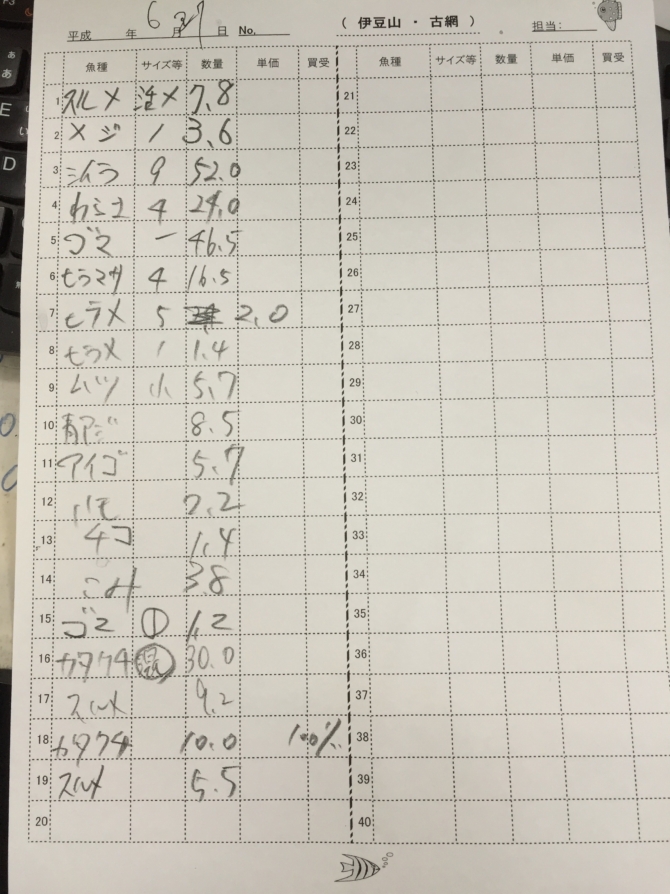 平成 年 6 月 27 日 No. ( 伊豆山 ・ 古網 ) 担当:
魚種 サイズ等 数量 単価 買受 魚種 サイズ等 数量 単価 買受
1 スルメ 7.8 21
2 メジ 1 3.6 22
3 シイラ 9 52.0 23
4 わらさ 4 24.0 24
5 ゴマ 一 46.5 25
6 ヒラマサ 4 16.5 26
7 ヒラメ 5 2.0 27
8 ヒラメ 1 1.4 28
9 ムツ 小 5.7 29
10 青アジ 8.5 30
11 アイゴ 5.7 31
12 ハモ 7.2 32
13 チコ 1.4 33
14 3.8 34
15 ゴマ ① 1.2 35
16 カタクチ 30.0 36
17 スルメ 9.2 37
18 カタクチ 10.0 100% 38
19 スルメ 5.5 39
20 40